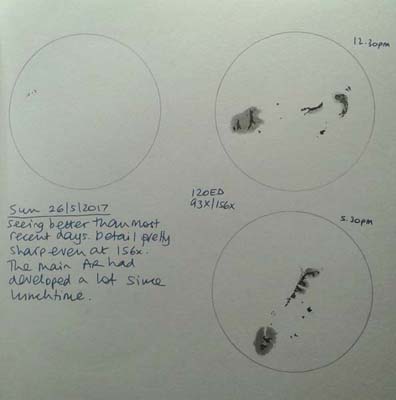 12.30pm
Sun 26/5/2017
seeing better than most
recent days. Detail pretty
sharp even at 156x.
The main AR had
developed a lot since
lunchtime.
120ED
93x/156x
5.30pm